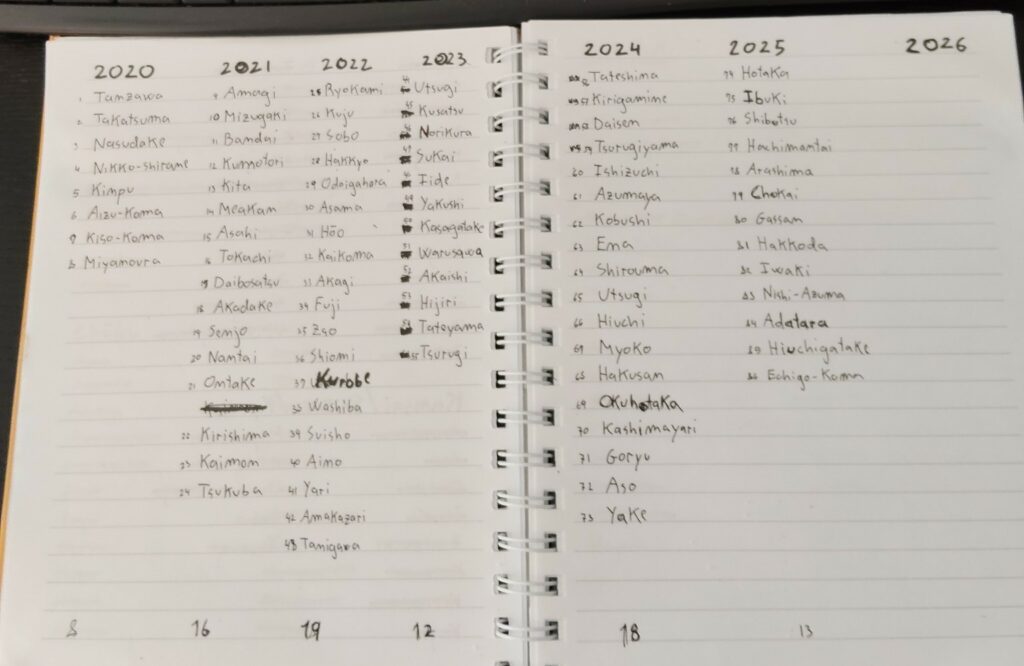 2020
1 Tanzawa
2 Takatsuma
3 Nasudake
4 Nikko-Shirane
5 Kimpu
6 Aizu-Koma
7 Kiso-Koma
8 Miyanoura
8
2021
9 Amagi
10 Mizugaki
11 Bandai
12 Kumotori
13 Kita
14 Meakan
15 Asahi
16 Tokachi
17 Daibosatsu
18 Akadake
19 Senjo
20 Nantai
21 Ontake
22 Kirishima
23 Kaimon
24 Tsukuba
16
2022
25 Ryokami
26 Kuju
27 Sobo
28 Hakkyo
29 Odaigahara
30 Asama
31 Hōo
32 Kaikoma
33 Akagi
34 Fuji
35 Zao
36 Shiomi
37 Kurobe
38 Washiba
39 Suisho
40 Aino
41 Yari
42 Amakazari
43 Tanigawa
19
2023
44 Utsugi
45 Kusatsu
46 Norikura
47 Sukai
48 Iide
49 Yakushi
50 Kasagatake
51 Warusawa
52 Akaishi
53 Hijiri
54 Tateyama
55 Tsurugi
12
2024
Tateshima
57 Kirigamine
Daisen
59 Tsurugiyama
60 Ishizuchi
61 Azumaya
62 Kobushi
63 Ena
64 Shirouma
65 Utsugi
66 Hiuchi
67 Myoko
68 Hakusan
69 Okuhotaka
70 Kashimayari
71 Goryu
72 Aso
73 Yake
18
2025
74 Hotaka
75 Ibuki
76 Shibutsu
77 Hachimantai
78 Arashima
79 Chokai
80 Gassan
81 Hakkoda
82 Iwaki
83 Nishi-Azuma
84 Adatara
85 Hiuchigatake
86 Echigo-Koma
13
2026